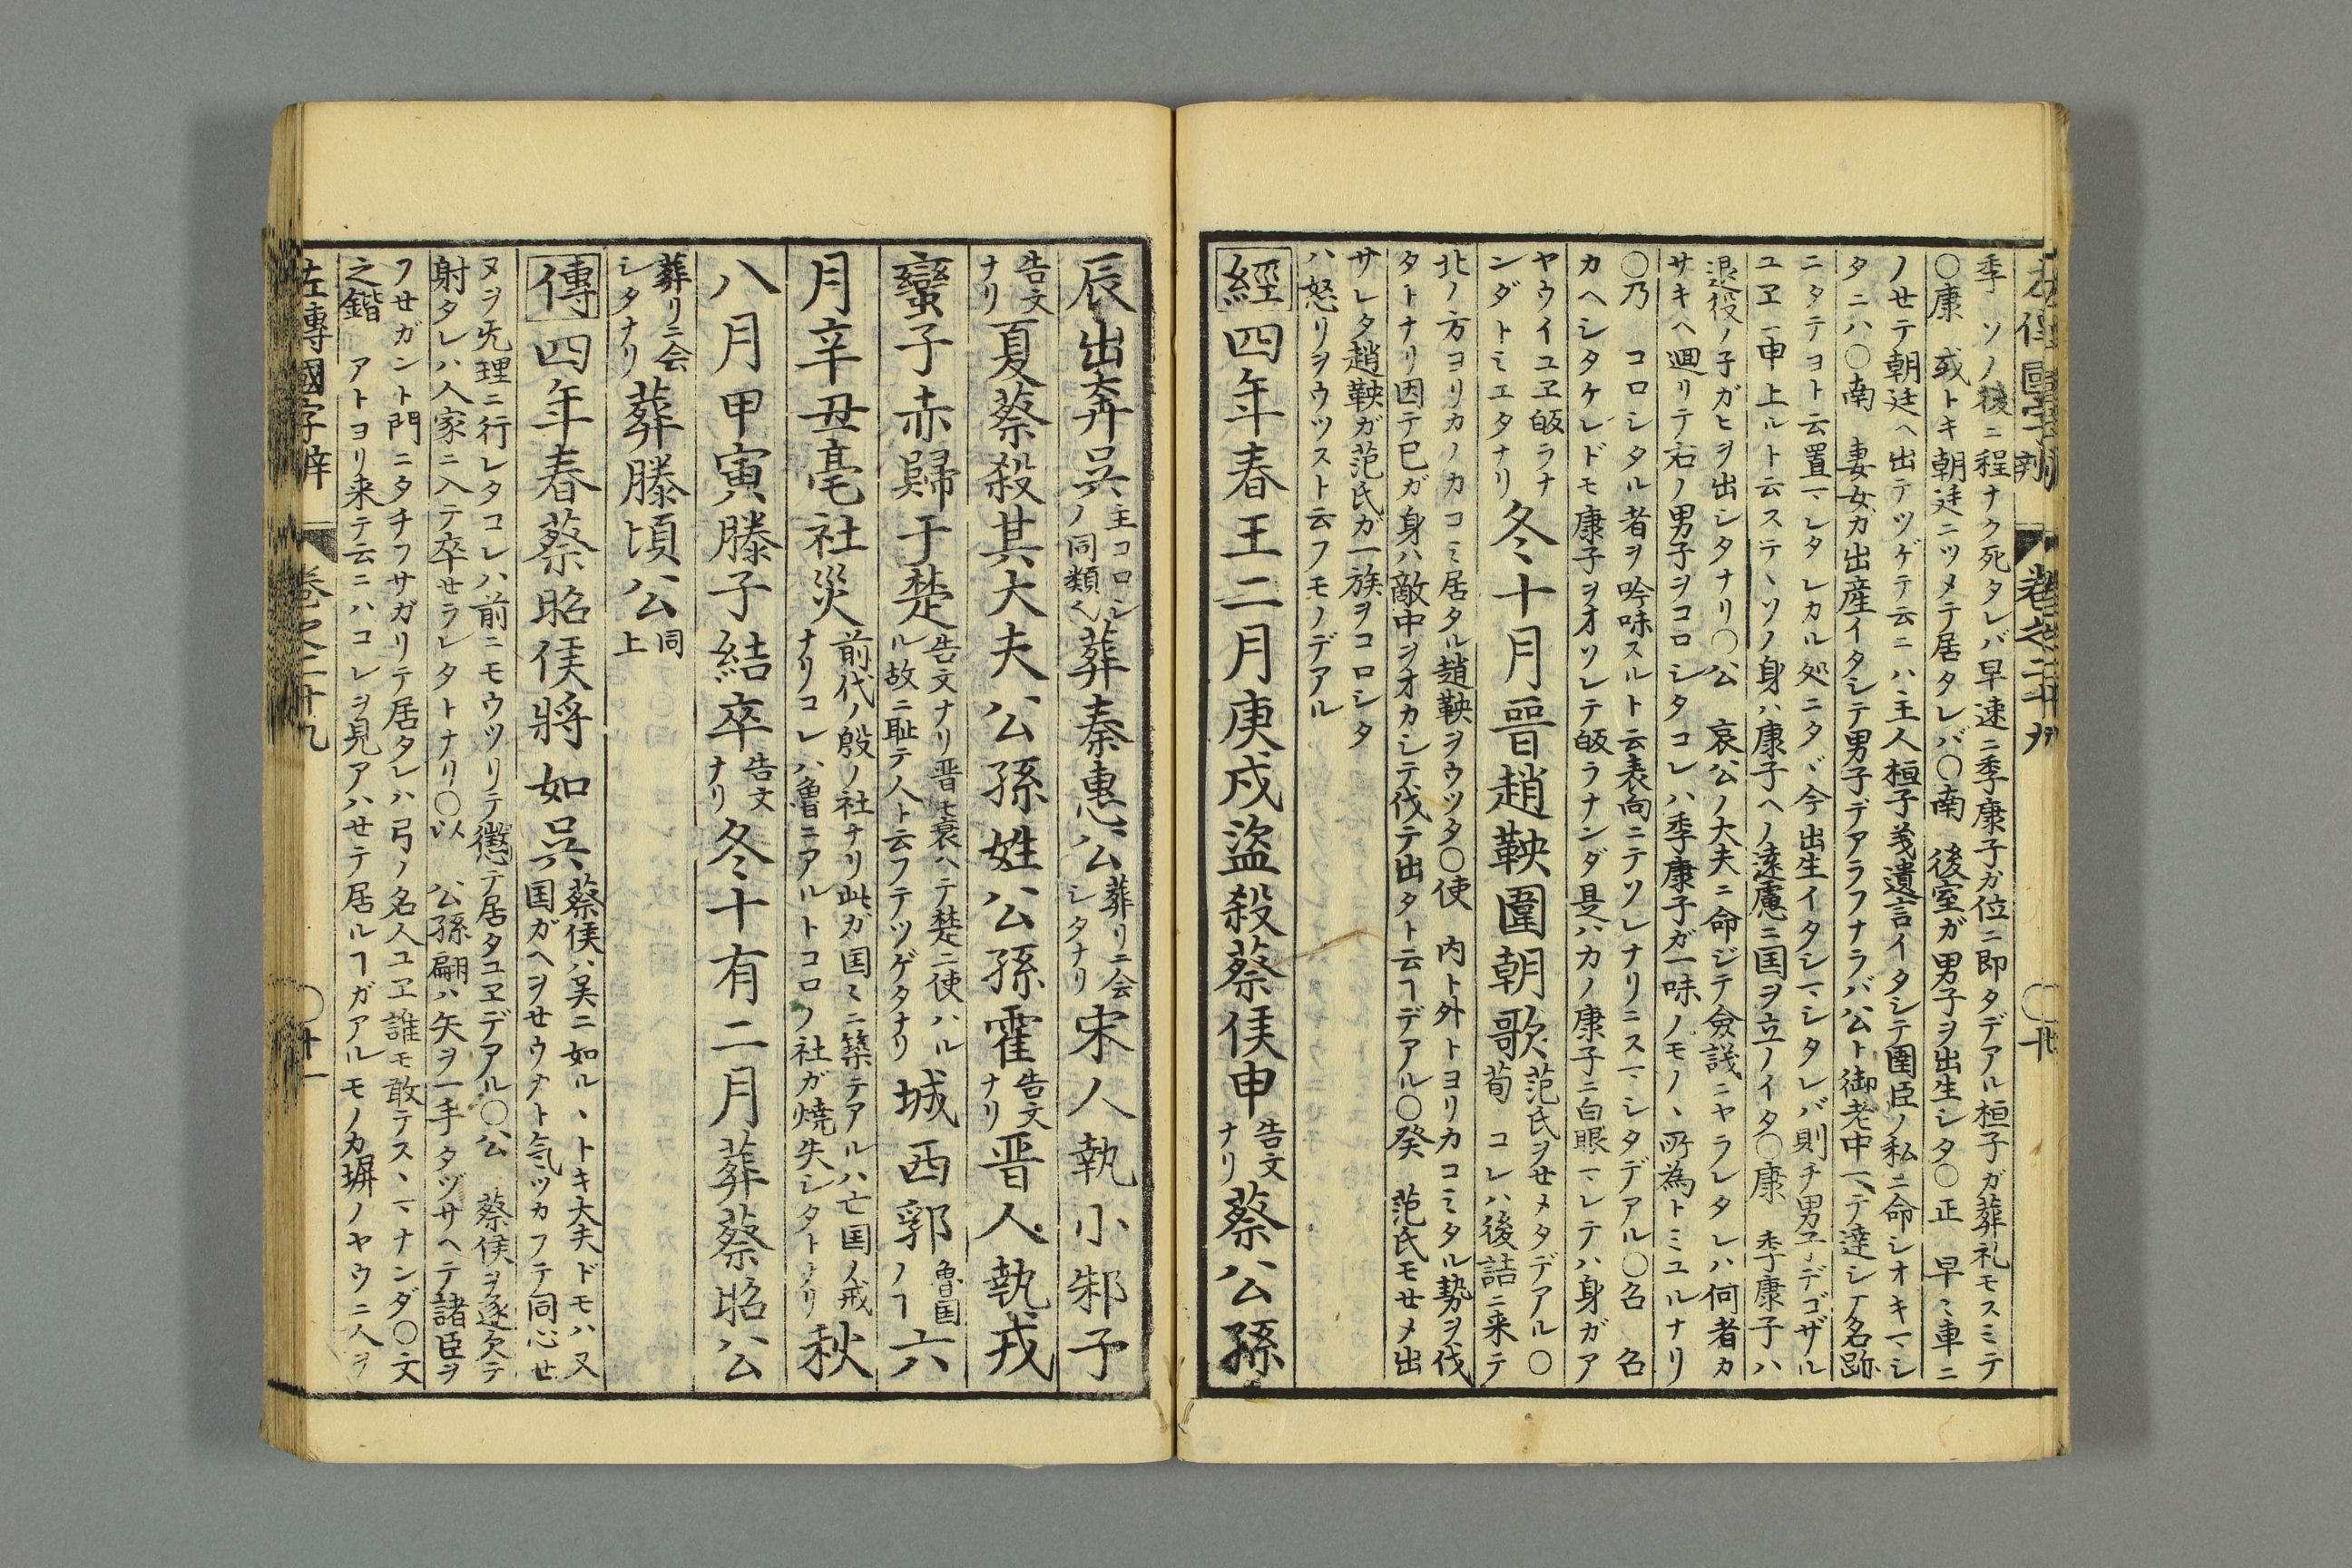 季　ソノ後ニ程ナク死タレバ早速ニ季康子ガ位ニ即タデアル桓子ガ葬礼モスミテ
○康　或トキ朝廷ニツメテ居タレバ○南　後室ガ男子ヲ出生シタ○正　早〻車ニ
ノセテ朝廷ヘ出テツゲテ云ニハ主人桓子義遺言イタシテ圉臣ノ私ニ命シオキマシ
タニハ○南　妻女ガ出産イタシテ男子デアラフナラバ公ト御老中ヘテ達シテ名跡
ニタテヨト云置マシタレカル処ニタヾ今出生イタシマシタレバ則チ男子デゴザル
ユヱ一申上ルト云ステヽソノ身ハ康子ヘノ遠慮ニ国ヲ立ノイタ○康　季康子ハ
退役ノ子ガヒヲ出シタナリ○公　哀公ノ大夫ニ命ジテ僉議ニヤラレタレハ何者カ
サキヘ廻リテ右ノ男子ヲコロシタコレハ季康子ガ一味ノモノヽ所為トミユルナリ
○乃　コロシタル者ヲ吟味スルト云表向ニテソレナリニスマシタデアル○召　召
カヘシタケレドモ康子ヲオソレテ皈ラナンダ是ハカノ康子ニ白眼マレテハ身ガア
ヤウイユヱ皈ラナ
ンダトミエタナリ
冬十月晉趙鞅圍朝歌
范氏ヲセメタデアル○
荀　コレハ後詰ニ来テ
北ノ方ヨリカノカコミ居タル趙鞅ヲウツタ○使　内ト外トヨリカコミタル勢ヲ伐
タトナリ因テ已ガ身ハ敵中ヲオカシテ伐テ出タト云ヿデアル○癸　范氏モセメ出
サレタ趙鞅ガ范氏ガ一族ヲコロシタ
ハ怒リヲウツスト云フモノデアル
經四年春王二月庚戌盜殺蔡侯申
告文
ナリ
蔡公孫
辰出奔呉
主コロシ
ノ同類也
葬秦惠公
葬リニ会
シタナリ
宋人執小邾子
告文
ナリ
夏蔡殺其大夫公孫姓公孫霍
告文
ナリ
晋人執戎
蠻子赤歸于楚
告文ナリ晋モ衰ヘテ楚ニ使ハル
ル故ニ恥テ人ト云フテツゲタナリ
城西郛
魯国
ノヿ
六
月辛丑亳社災
前代ノ殷ノ社ナリ此ガ国〻ニ築テアルハ亡国ノ戒
ナリコレハ魯ニアルトコロノ社ガ焼失シタトナリ
秋
八月甲寅滕子結卒
告文
ナリ
冬十有二月葬蔡昭公
葬リニ会
シタナリ
葬滕頃公
同
上
傳四年春蔡昭侯將如呉
蔡侯ハ呉ニ如ルヽトキ大夫ドモハ又
国ガヘヲセウナト気ツカフテ同心セ
ヌヲ无理ニ行レタコレハ前ニモウツリテ懲テ居タユヱデアル○公　蔡侯ヲ逐欠テ
射タレハ人家ニ入テ卒セラレタトナリ○以　公孫翩ハ矢ヲ一手タヅサヘテ諸臣ヲ
フセガント門ニタチフサガリテ居タレハ弓ノ名人ユヱ誰モ敢テスヽマナンダ○文
之鍇　アトヨリ来テ云ニハコレヲ見アハセテ居ルヿガアルモノカ塀ノヤウニ人ヲ
左傳國字辯　卷之二十九　○廿一